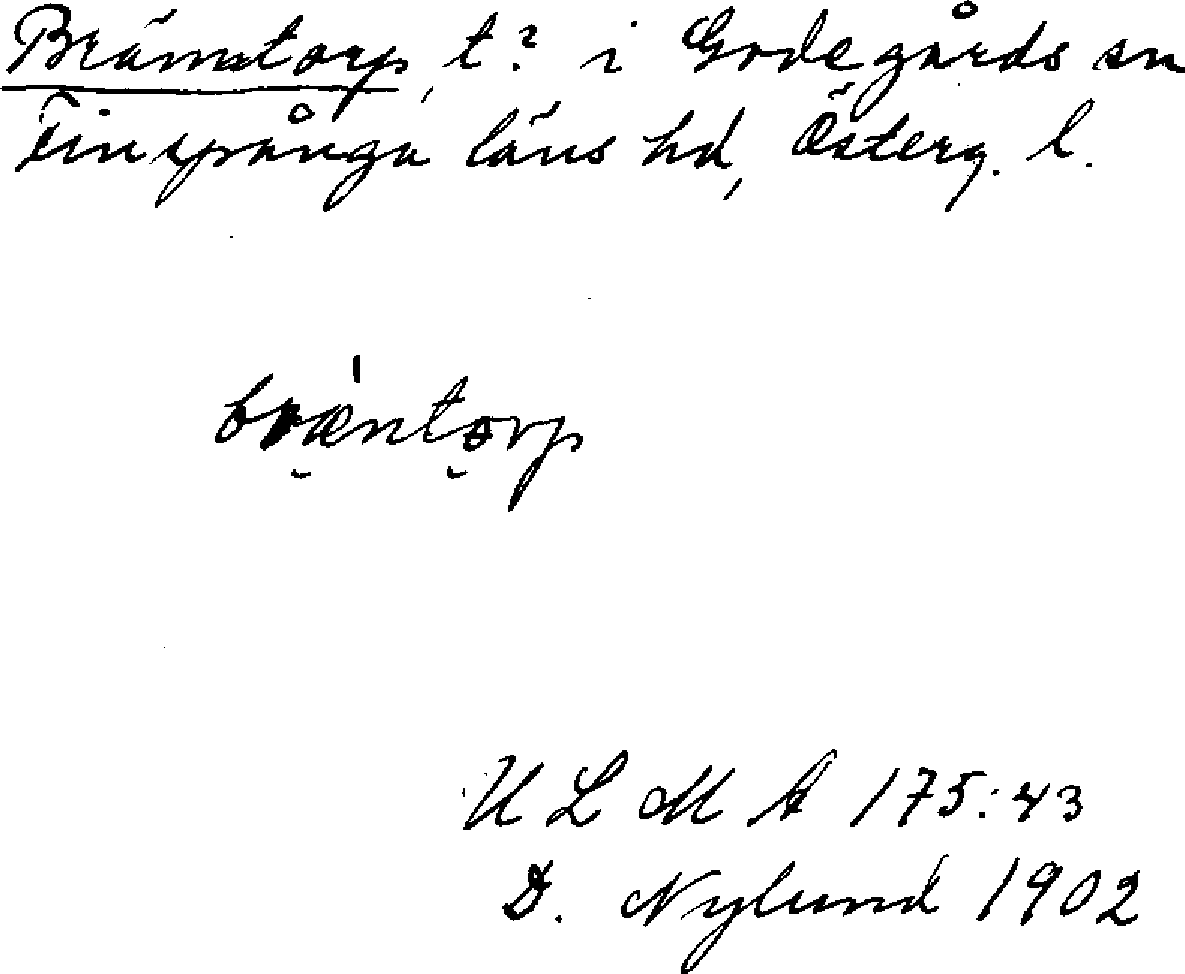 Brännstorp, t? i Godegårds sn
Finspånga läns hd, Österg. l.
bræntorp
U L M A 175:43
D. Nylund 1902